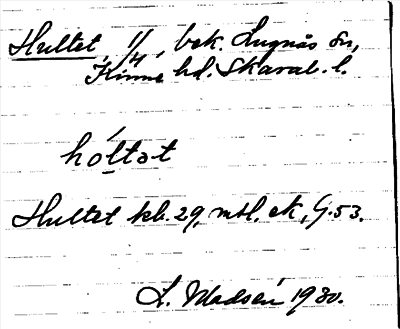 Hultet, 1/4, bek. Lugnås sn,
Kinne hd. Skarab. l.
hóltet
Hultet kb. 29, mtl. ek, G. 53.
L. Madsén 1930.